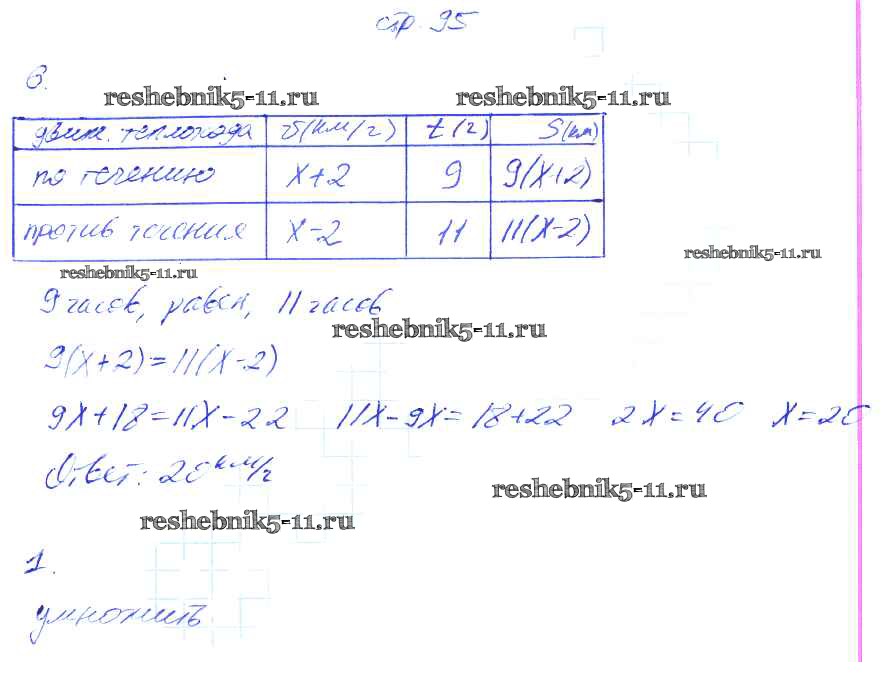 стр. 95
6.
reshebnik5-11.ru reshebnik5-11.ru
движ. теплохода v(км/ч) t(ч) S(км)
по течению x+2 9 9(x+2)
против течения x-2 11 11(x-2)
reshebnik5-11.ru reshebnik5-11.ru
9 часов, равен, 11 часов
reshebnik5-11.ru
9(x+2)=11(x-2)
9x+18=11x-22 11x-9x=18+22 2x=40 x=20
Ответ: 20 км/ч
reshebnik5-11.ru
reshebnik5-11.ru
1.
умножить